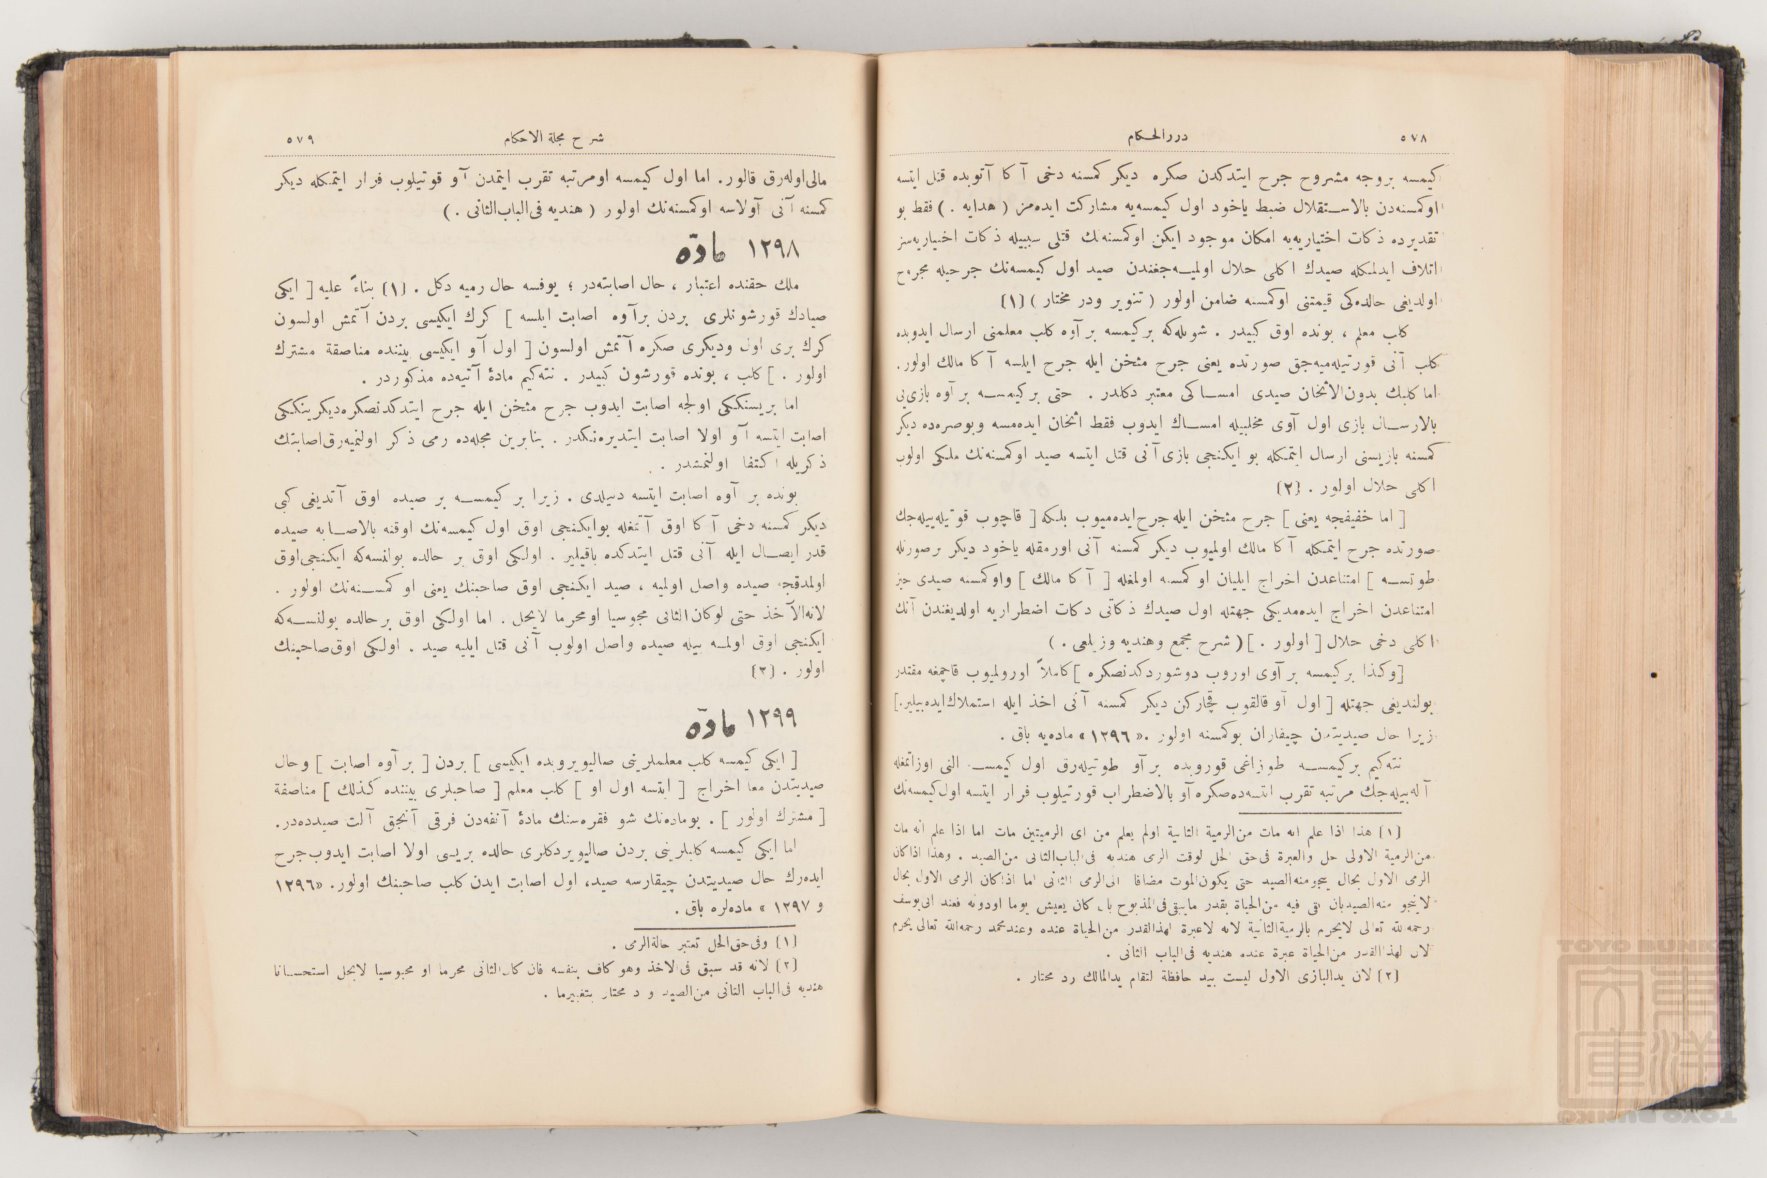 ٥٧٨
دررالحكام
كيمسه بروجه مشروح جرح ايتدكدن صكره ديكر كمسنه دخى آ كا آتوبده قتل ايتسه
اوكمسنه‌دن بالاستقلال ضبط ياخود اول كيمسه‌يه مشاركت ايده‌مز ( هدايه . ) فقط بو
تقديرده ذكات اختياريه‌يه امكان موجود ايكن اوكمسنه‌نك قتلى سببيله ذكات اختياريه‌سز
اتلاف ايدلمكله صيدك اكلى حلال اولميه‌جغندن صيد اول كيمسه‌نك جرحيله مجروح
اولديغى حالده‌كى قيمتنى اوكمسنه ضامن اولور ( تنوير ودر مختار ) [١]
كلب معلم ، بونده اوق كبيدر . شويله‌كه بركيمسه بر آوه كلب معلمنى ارسال ايدوبده
كلب آنى قورتيله‌ميه‌جق صورتده يعنى جرح مثخن ايله جرح ايلسه آ كا مالك اولور.
اما كلبك بدون‌الاثخان صيدى امساكى معتبر دكلدر . حتى بركيمسه بر آوه بازى‌يى
بالارسال بازى اول آوى مخلبيله امساك ايدوب فقط اثخان ايده‌مسه وبوصره‌ده ديكر
كمسنه بازيسنى ارسال ايتمكله بو ايكنجى بازى آنى قتل ايتسه صيد اوكمسنه‌نك ملكى اولوب
اكلى حلال اولور . [٢]
[ اما خفيفجه يعنى ] جرح مثخن ايله جرح‌ايده‌ميوب بلكه [ قاچوب قورتيله‌بيله‌جك
صورتده جرح ايتمكله آ كا مالك اولميوب ديكر كمسنه آنى اورمقله ياخود ديكر برصورتله
طوتسه ] امتناعدن اخراج ايليان اوكمسنه اولمغله [ آ كا مالك ] واوكمسنه صيدى حيز
امتناعدن اخراج ايده‌مديكى جهتله اول صيدك ذكاتى ذكات اضطراريه اولديغندن آنك
اكلى دخى حلال [ اولور . ] ( شرح مجمع وهنديه وزيلعى . )
[وكذا بركيمسه بر آوى اوروب دوشوردكدنصكره ]كاملاً اورولميوب قاچمغه مقتدر
بولنديغى جهتله [ اول آو قالقوب قچاركن ديكر كمسنه آنى اخذ ايله استملاك‌ايده‌بيلير.]
زيرا حال صيديتدن چيقاران بوكمسنه اولور .« ١٢٩٦» ماده‌يه باق .
نته‌كيم بركيمسه طوزاغى قوروبده برآو طوتيله‌رق اول كيمسه النى اوزاتمغله
آله‌بيله‌جك مرتبه تقرب ايتسه‌ده‌صكره‌آو بالاضطراب قورتيلوب فرار ايتسه اول‌كيمسه‌نك
[١] هذا اذا علم انه مات من‌الرمية الثانية اولم يعلم من اى الرميتين مات اما اذا علم انه مات
من‌الرمية الاولى حل والعبرة فى‌حق الحل لوقت الرمى هنديه فى‌الباب‌الثانى من‌الصيد . وهذا اذاكان
الرمى الاول بحال ينجومنه‌الصيد حتى يكون‌الموت مضافا الى‌الرمى الثانى اما اذاكان الرمى الاول بحال
لاينجو منه‌الصيدبان بقى فيه من‌الحياة بقدر مايبقى‌فى‌المذبوح بان كان يعيش يوما اودونه فعند ابى‌يوسف
رحمه‌الله تعالى لايحرم بالرمية‌الثانية لانه لاعبرة لهذاالقدر من‌الحياة عنده وعندمحمد رحمه‌الله تعالى يحرم
لان لهذاالقدر من‌الحياة عبرة عنده هنديه فى‌الباب الثانى .
[٢] لان يدالبازى الاول ليست بيد حافظة لتقام يدالمالك رد محتار .
شرح مجلة الاحكام
٥٧٩
مالى‌اوله‌رق قالور. اما اول كيمسه اومرتبه تقرب ايتمدن آو قورتيلوب فرار ايتمكله ديكر
كمسنه آنى آولاسه اوكمسنه‌نك اولور ( هنديه فى‌الباب‌الثانى . )
١٢٩٨ مادّه
ملك حقنده اعتبار ، حال اصابته‌در ؛ يوقسه حال رميه دكل . [١] بناءً عليه [ ايكى
صيادك قورشونلرى بردن برآوه اصابت ايلسه ] كرك ايكيسى بردن آتمش اولسون
كرك برى اول وديكرى صكره آتمش اولسون [ اول آو ايكيسى بيننده مناصفة مشترك
اولور . ] كلب ، بونده قورشون كبيدر . نته‌كيم مادهٔ آتيه‌ده مذكوردر .
اما بريسنككى اولجه اصابت ايدوب جرح مثخن ايله جرح ايتدكدنصكره‌ديكرينككى
اصابت ايتسه آو اولا اصابت ايتديره‌نكدر . بنابرين مجله‌ده رمى ذكر اولنميه‌رق‌اصابتك
ذكريله اكتفا اولنمشدر .
بونده بر آوه اصابت ايتسه دينلدى . زيرا بر كيمسه بر صيده اوق آتديغى كبى
ديكر كمسنه دخى آ كا اوق آتمغله بوايكنجى اوق اول كيمسه‌نك اوقنه بالاصابه صيده
قدر ايصال ايله آنى قتل ايتدكده باقيلير . اولكى اوق بر حالده بولنسه‌كه ايكنجى‌اوق
اولمدقجه صيده واصل اولميه ، صيد ايكنجى اوق صاحبنك يعنى او كمسنه‌نك اولور .
لانه‌الآخذ حتى لوكان‌الثانى مجوسيا اومحرما لايحل . اما اولكى اوق برحالده بولنسه‌كه
ايكنجى اوق اولمسه بيله صيده واصل اولوب آنى قتل ايليه صيد . اولكى اوق‌صاحبنك
اولور . [٢]
١٢٩٩ مادّه
[ ايكى كيمسه كلب معلملرينى صاليويروبده ايكيسى ] بردن [ بر آوه اصابت ] وحال
صيديتدن معا اخراج [ ايتسه اول آو ] كلب معلم [ صاحبلرى بيننده كذلك ] مناصفة
[ مشترك اولور ] . بوماده‌نك شو فقره‌سنك مادهٔ آنفه‌دن فرقى آنجق آلت صيدده‌در.
اما ايكى كيمسه كلبلرينى بردن صاليويردكلرى حالده بريسى اولا اصابت ايدوب‌جرح
ايده‌رك حال صيديتدن چيقارسه صيد، اول اصابت ايدن كلب صاحبنك اولور. «١٢٩٦
و ١٢٩٧ » ماده‌لره باق .
[١] وفى‌حق‌الحل تعتبر حالة‌الرمى .
[٢] لانه قد سبق فى‌الاخذ وهو كاف بنفسه فان كان‌الثانى محرما او مجوسيا لايحل استحسانا
هنديه فى‌الباب الثانى من‌الصيد و د محتار بتغييرما .
TOYO BUNKO